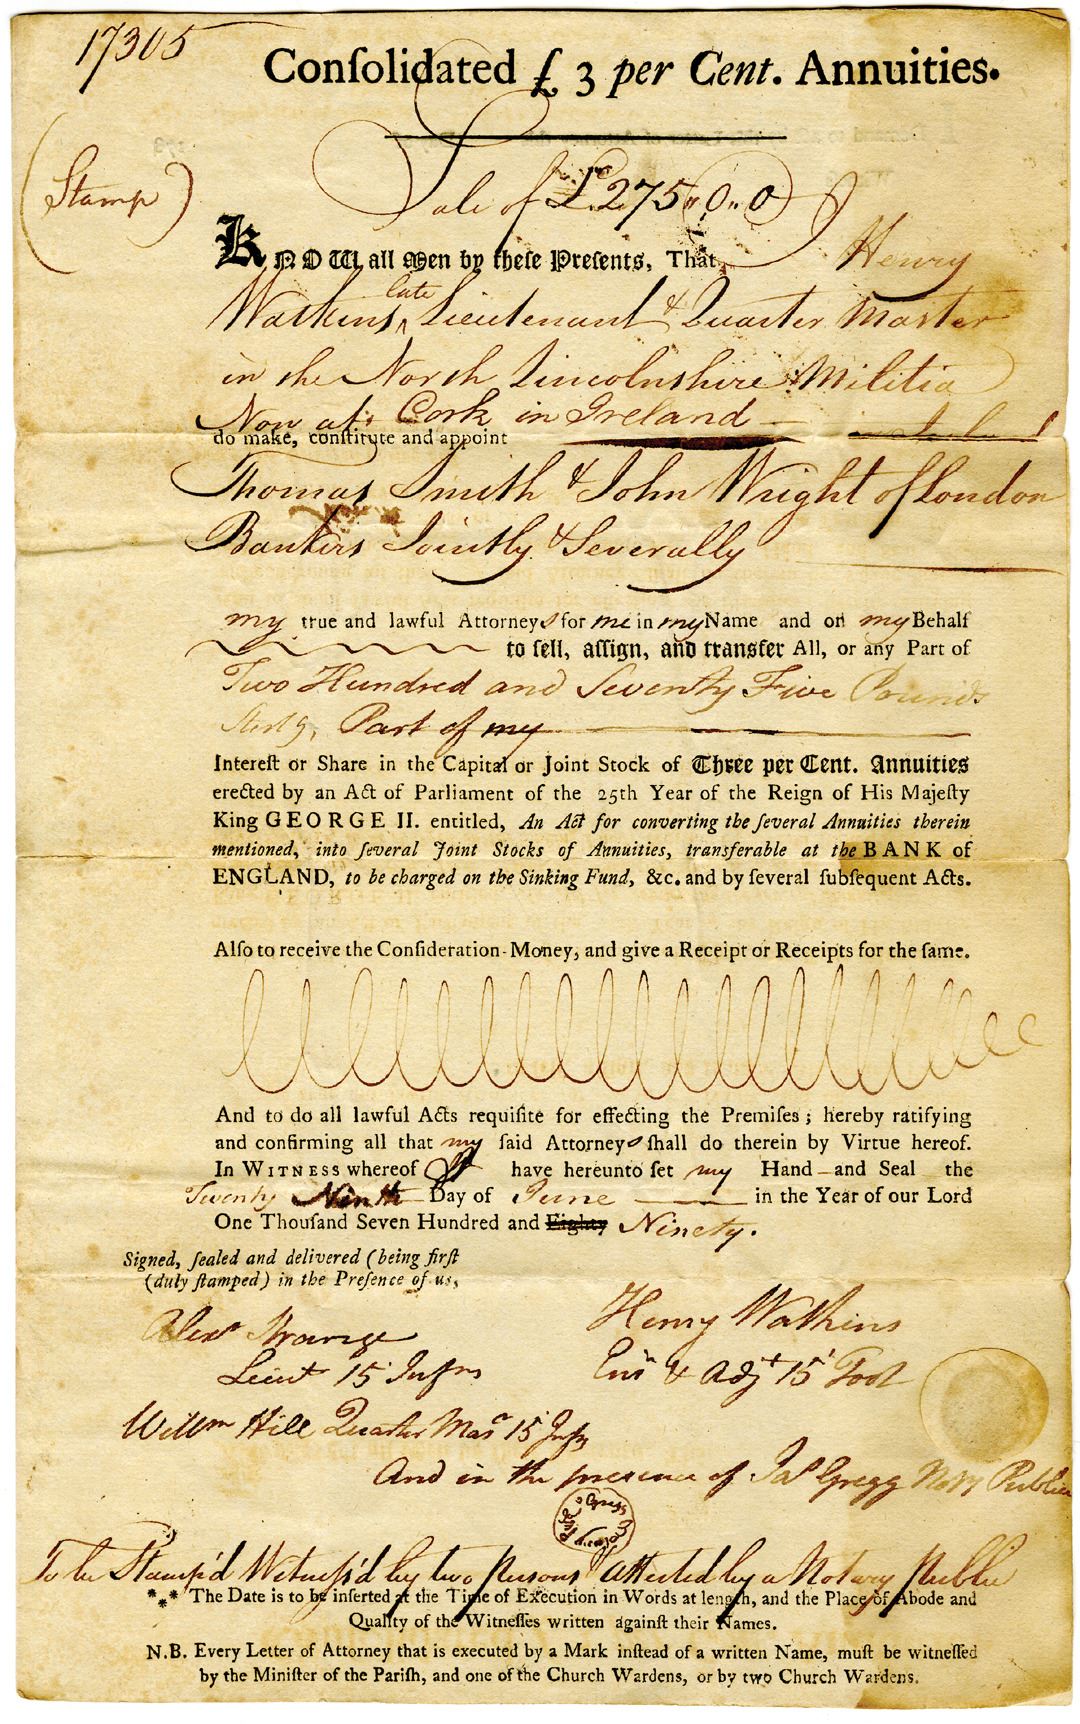 17305
Conſolidated £ 3 per Cent. Annuities.
(Stamp)
Sale of £275,,0,,0
KNOW all Men by theſe Preſents, That Henry
Watkins late Lieutenant & Quarter Master
in the North Lincolnshire Militia
Now at Cork in Ireland
do make, conſtitute and appoint
Thomas Smith & John Wright of London
Bankers Jointly & Severally
my true and lawful Attorneys for me in my Name and on my Behalf
to ſell, aſſign, and transfer All, or any Part of
Two Hundred and Seventy Five Pounds
Sterlg, Part of my
Intereſt or Share in the Capital or Joint Stock of Three per Cent. Annuities
erected by an Act of Parliament of the 25th Year of the Reign of His Majeſty
King GEORGE II. entitled, An Act for converting the ſeveral Annuities therein
mentioned, into ſeveral Joint Stocks of Annuities, transferable at the BANK of
ENGLAND, to be charged on the Sinking Fund, &c. and by ſeveral ſubſequent Acts.
Alſo to receive the Conſideration-Money, and give a Receipt or Receipts for the ſame.
And to do all lawful Acts requiſite for effecting the Premiſes; hereby ratifying
and confirming all that my ſaid Attorneys ſhall do therein by Virtue hereof.
In WITNESS whereof I have hereunto ſet my Hand and Seal the
Twenty Ninth Day of June in the Year of our Lord
One Thouſand Seven Hundred and Eighty Ninety.
Signed, ſealed and delivered (being firſt
(duly ſtamped) in the Preſence of us,
Alexr Strange
Lieut 15 Infry
Henry Watkins
Ensn & Adjt 15 Foot
Willm Hill Quarter Masr 15 Infy
And in the presence of Jas Gregg Noty Public
To be Stamp'd Witness'd by two Persons & attested by a Notary Public
*** The Date is to be inſerted at the Time of Execution in Words at length, and the Place of Abode and
Quality of the Witneſſes written againſt their Names.
N.B. Every Letter of Attorney that is executed by a Mark inſtead of a written Name, muſt be witneſſed
by the Miniſter of the Pariſh, and one of the Church Wardens, or by two Church Wardens.